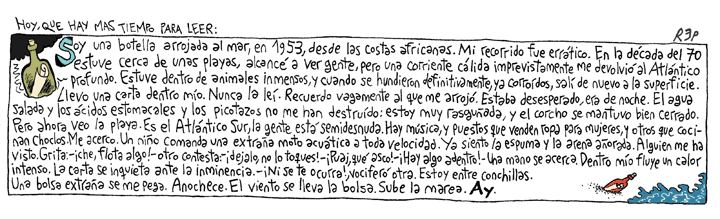 HOY, QUE HAY MAS TIEMPO PARA LEER:
R3P
Soy una botella arrojada al mar, en 1953, desde las costas africanas. Mi recorrido fue errático. En la década del 70
estuve cerca de unas playas, alcancé a ver gente, pero una corriente cálida imprevistamente me devolvió al Atlántico
profundo. Estuve dentro de animales inmensos, y cuando se hundieron definitivamente, ya corroídos, salí de nuevo a la superficie.
Llevo una carta dentro mío. Nunca la leí. Recuerdo vagamente al que me arrojó. Estaba desesperado, era de noche. El agua
salada y los ácidos estomacales y los picotazos no me han destruido: estoy muy rasguñada, y el corcho se mantuvo bien cerrado.
Pero ahora veo la playa. Es el Atlántico Sur, la gente está semidesnuda. Hay música, y puestos que venden ropa para mujeres, y otros que coci-
nan choclos. Me acerco. Un niño comanda una extraña moto acuática a toda velocidad. Ya siento la espuma y la arena añorada. Alguien me ha
visto. Grita: -¡che, flota algo!- otro contesta: -¡dejalo, no lo toques!- -¡Puaj, qué asco!- -¡Hay algo adentro!- Una mano se acerca. Dentro mío fluye un calor
intenso. La carta se inquieta ante la inminencia. -¡Ni se te ocurra!, vociferó otra. Estoy entre conchillas.
Una bolsa extraña se me pega. Anochece. El viento se lleva la bolsa. Sube la marea. Ay.